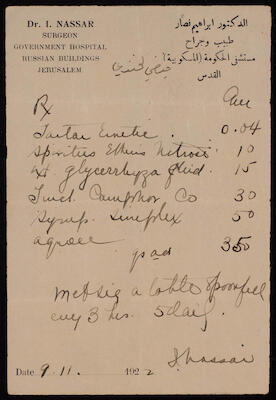 Dr. I. NASSAR
SURGEON
GOVERNMENT HOSPITAL
RUSSIAN BUILDINGS
JERUSALEM
الدكتور ابراهيم نصار
طبيب وجراح
مستشفى الحكومة (المسكوبية)
القدس
Rx
Tartar Emetic . 0.04
Spiritus Etheris Nitrosi 10
Xt glycerrhyza fluid. 15
Tinct. Camphor Co 30
Syrup. Simplex 50
aquae
ad 350
a table spoonful
every 3 hrs.
Date 9.11. 1922
I. Nassar